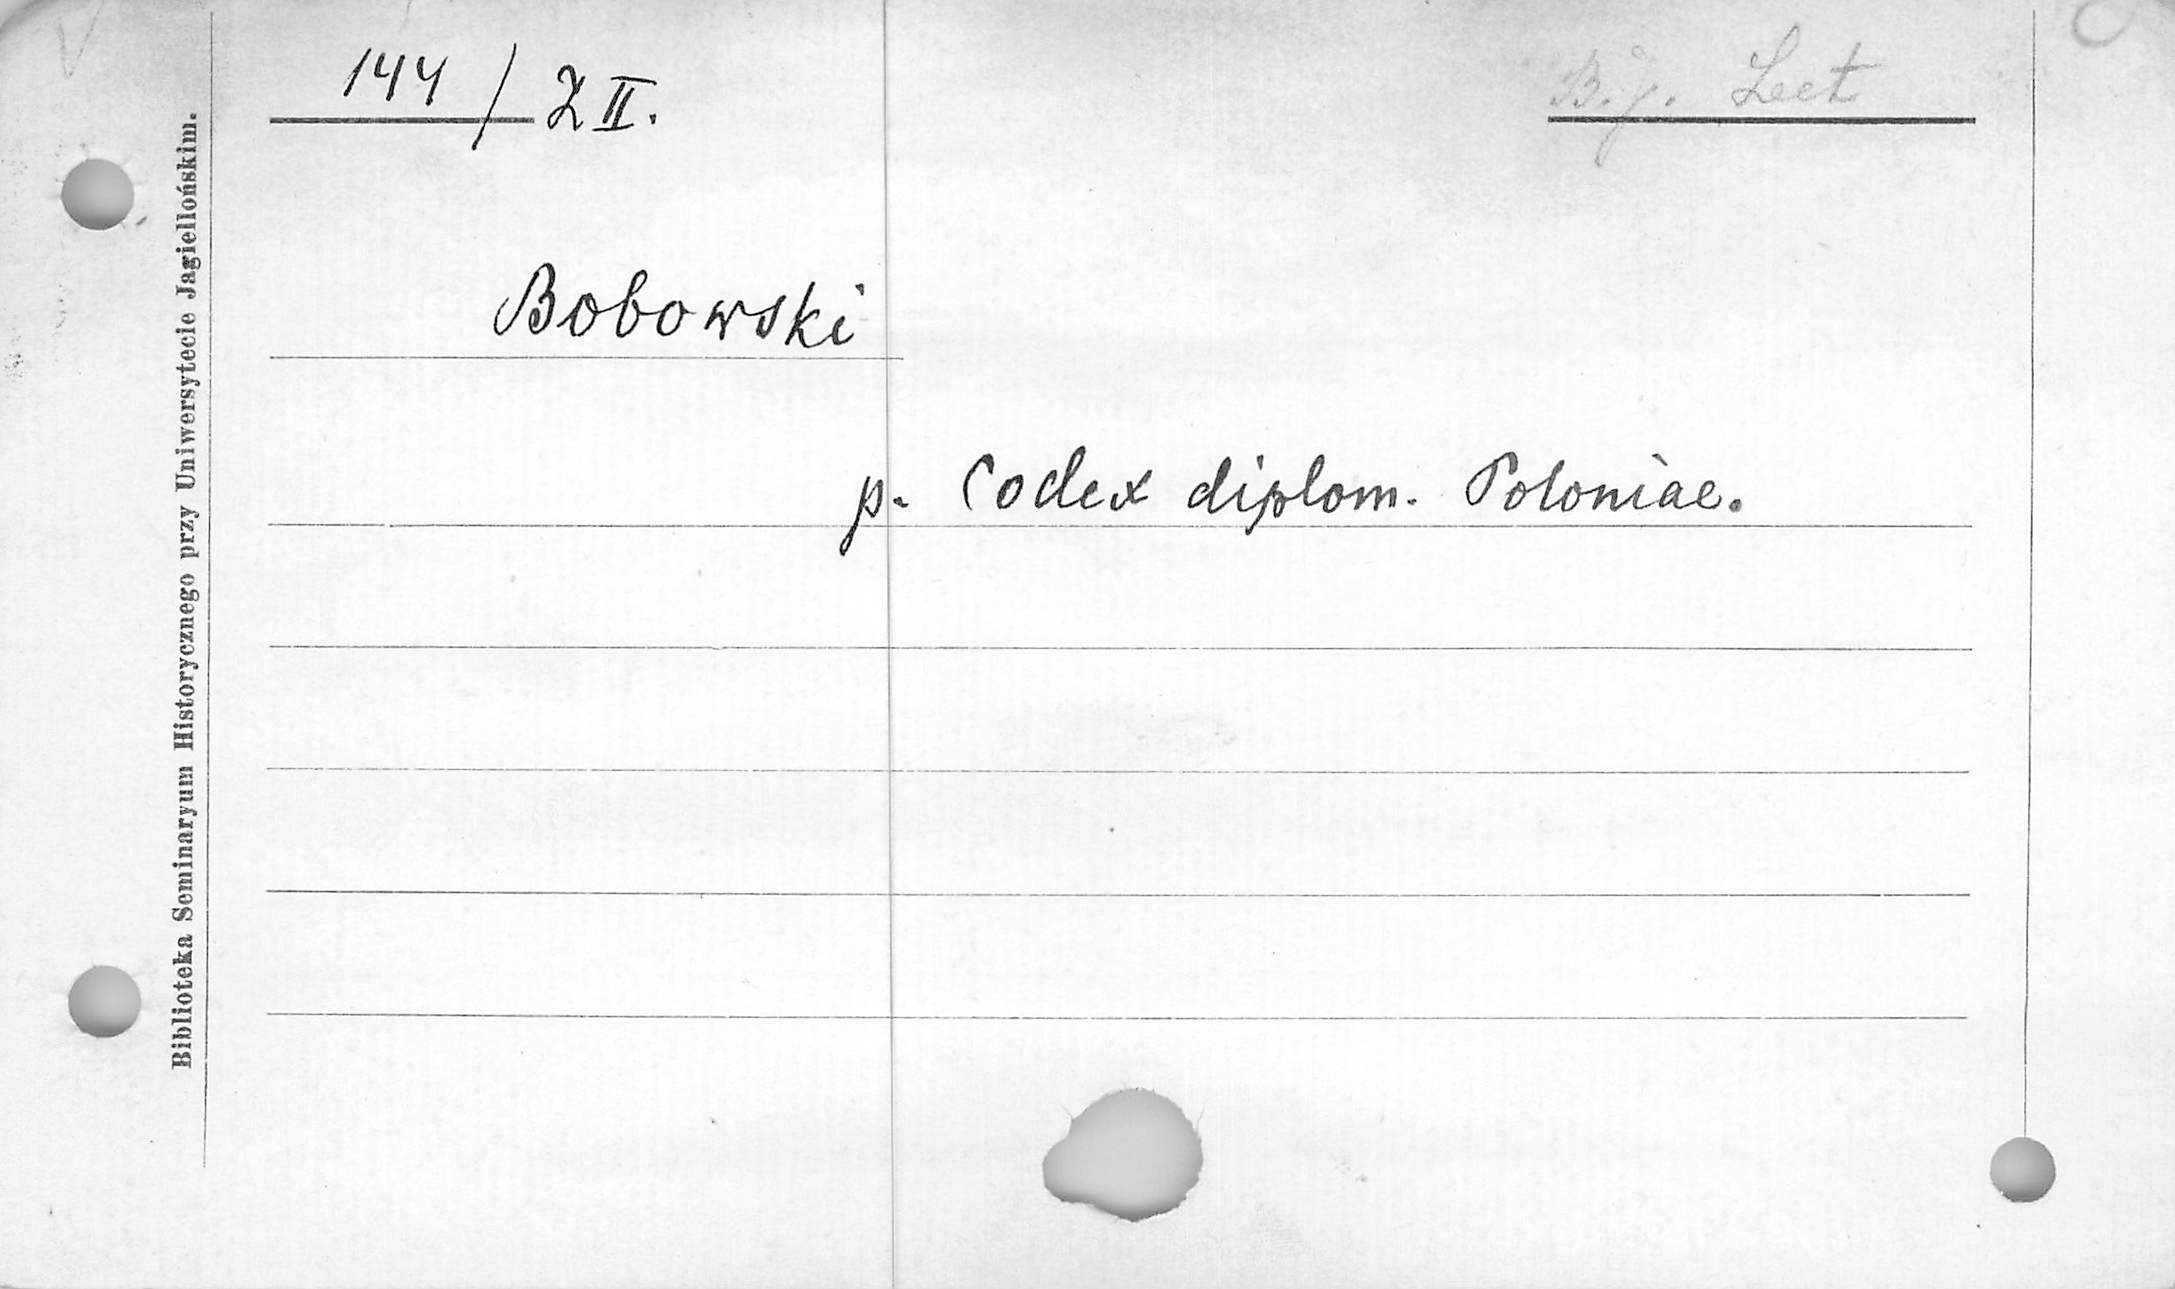 144 / Z II.
B.J. Lect
Bobowski
p. Codex diplom. Poloniae.
Biblioteka Seminaryum Historycznego przy Uniwersytecie Jagiellońskim.